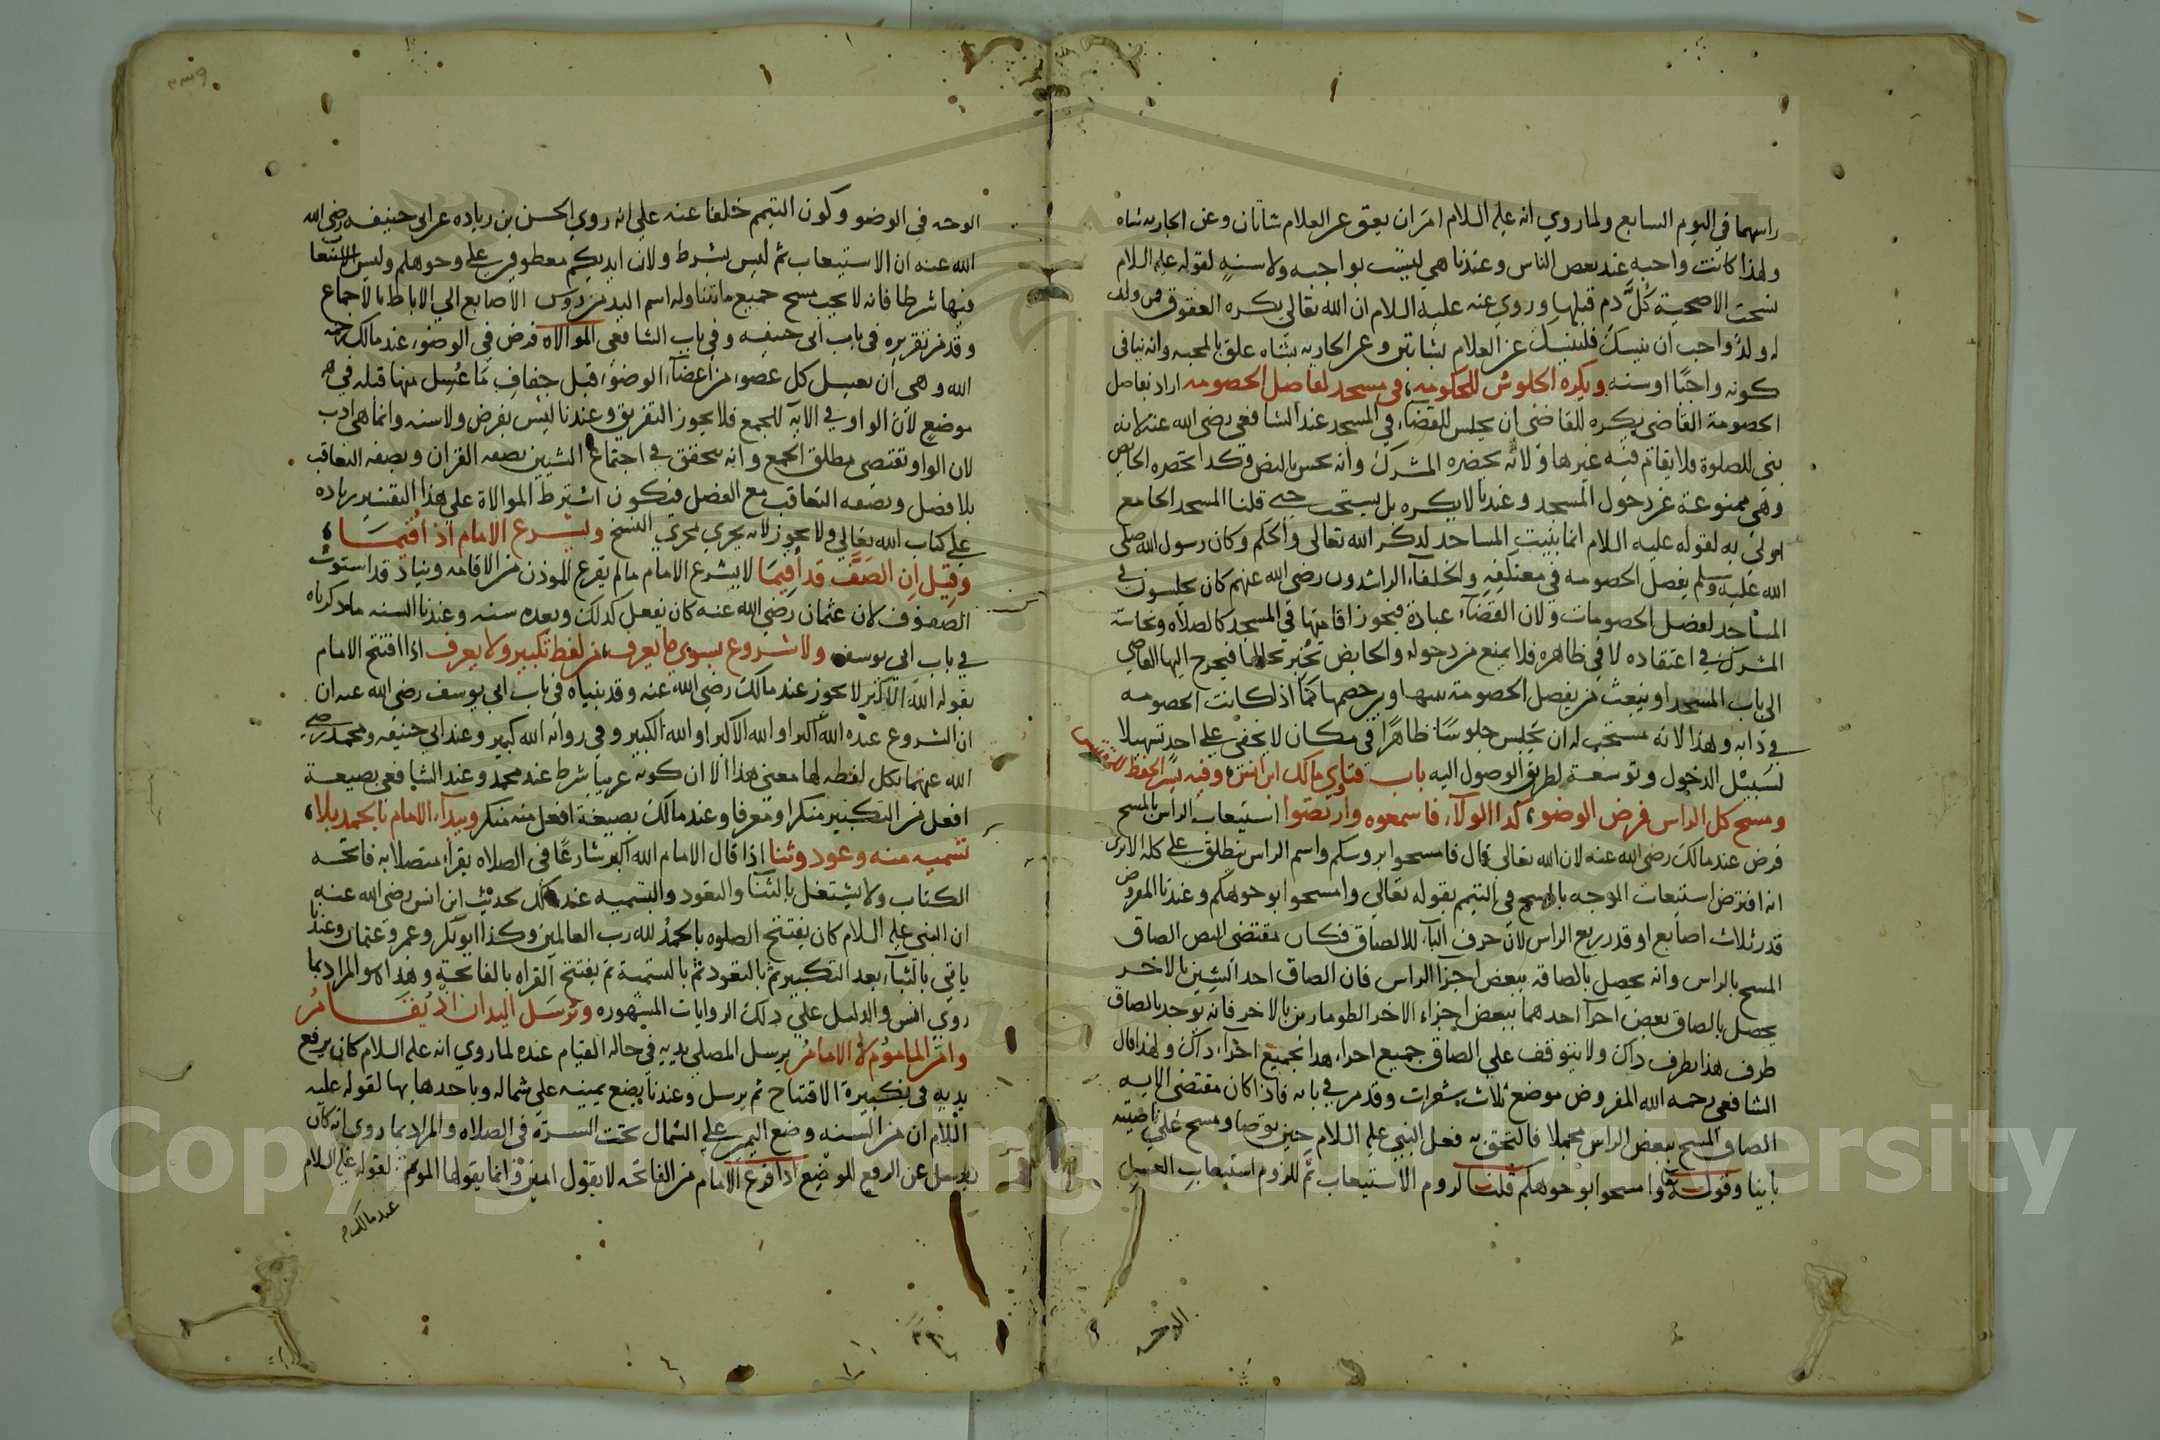 راسهما في اليوم السابع ولما روي انه عليه السلام امر ان يعق عن الغلام شاتان وعن الجارية شاه
ولهذا كانت واجبه عند بعض الناس وعندنا هي ليست بواجبه ولا سنه لقوله عليه السلام
نسخت الاضحية كل دم قبلها وروي عنه عليه السلام ان الله تعالى يكره العقوق فمن ولد
له ولد واحب ان ينسك فلينسك عن الغلام بشاتين وعن الجاريه بشاه علق بالمحبه وانه ينافي
كونه واجبا او سنه ويكره الجلوش للحكومه، في مسجد لفاصل الخصومه اراد بفاصل
الخصومة القاضي يكره للقاضي ان يجلس للقضاء في المسجد عند الشافعي رضي الله عنه لانه
بني للصلوة فلا يقام فيه غيرها ولانه يحضره المشرك وانه نجس بالنص وكذا تحضره الحايض
وهي ممنوعة عن دخول المسجد وعندنا لا يكره بل يستحب حتى قلنا المسجد الجامع
اولى به لقوله عليه السلام انما بنيت المساجد لذكر الله تعالى والحكم وكان رسول الله صلى
الله عليه وسلم يفصل الخصومه في معتكفه والخلفاء الراشدون رضي الله عنهم كان يجلسون في
المساجد لفصل الخصومات ولان القضاء عبادة فيجوز اقامتها في المسجد كالصلاه ونجاسة
المشرك في اعتقاده لا في ظاهره فلا يمنع من دخوله والحايض تخبر بحالها فيخرج اليها القاضي
الى باب المسجد او يبعث من يفصل الخصومة بينها وبين خصمها كما اذا كانت الخصومه
في دابه ولهذا لانه يستحب له ان يجلس جلوسا ظاهرا في مكان لا يخفى على احد تسهيلا
لسبيل الدخول وتوسعة لطريق الوصول اليه باب فتاوي مالك ابن انس، وفيه يسر الحفظ
ومسح كل الراس فرض الوضو، كذا الولا، فاسمعوه وارتضوا استيعاب الراس بالمسح
فرض عند مالك رضي الله عنه لان الله تعالى قال فامسحوا بروسكم واسم الراس ينطلق على كله الا ترى
انه افترض استيعاب الوجه بالمسح في التيمم بقوله تعالى وامسحوا بوجوهكم وعندنا المفروض
قدر ثلاث اصابع او قدر ربع الراس لان حرف الباء للالصاق فكان مقتضى النص الصاق
المسح بالراس وانه يحصل بالصاقه ببعض اجزا الراس فان الصاق احد الشيين بالاخر
يحصل بالصاق بعض اجزا احدهما ببعض اجزاء الاخر الطومارين بالاخر فانه يوجد بالصاق
طرف هذا بطرف ذاك ولا يتوقف على الصاق جميع اجزاء هذا بجميع اجزاء ذاك ولهذا قال
الشافعي رحمه الله المفروض موضع ثلاث شعرات وقد مر في بابه فاذا كان مقتضى الايه
الصاق المسح ببعض الراس مجملا فالتحق به فعل النبي عليه السلام حين توضا ومسح على ناصيته
بيانا وقوله وامسحوا بوجوهكم قلنا لزوم الاستيعاب ثم للزوم استيعاب الغسل
الوجه في الوضو وكون التيمم خلفا عنه على انه روي الحسن بن زياده عن ابي حنيفه رضي الله
الله عنه ان الاستيعاب ثم ليس بشرط ولان ايديكم معطوف على وجوهكم وليس
فيها شرطا فانه لا يجب مسح جميع ما يتناوله اسم اليد من روس الاصابع الى الاباط بالاجماع
وقد مر تقريره في باب ابي حنيفه وفي باب الشافعي الموالاه فرض في الوضوء عند مالك رحمه
الله وهي ان يغسل كل عضو من اعضاء الوضوء قبل جفاف ما غسل منها قبله في
موضع لان الواو في الايه للجمع فلا يجوز التفريق وعندنا ليس بفرض ولا سنه وانما هي ادب
لان الواو تقتضي مطلق الجمع وانه يتحقق في اجتماع الشيين بصفه القران وبصفه التعاقب
بلا فصل وبصفه التعاقب مع الفصل فيكون اشترط الموالاة على هذا التفسير زياده
على كتاب الله تعالى ولا يجوز لانه يجري مجري النسخ ويشرع الامام اذ اقيما،
وقيل ان الصف قد اقيما لا يشرع الامام ما لم يفرغ الموذن من الاقامه وينادي قد استوت
الصفوف لان عثمان رضي الله عنه كان يفعل كذلك وبعده سنه وعندنا السنه ما ذكرناه
في باب ابي يوسف ولا شروع بسوى ما يعرف، من لفظ تكبير ولا يعرف اذا افتتح الامام
بقوله الله الاكبر لا يجوز عند مالك رضي الله عنه وقد بيناه في باب ابي يوسف رضي الله عنه ان
ان الشروع عنده الله اكبر او الله الاكبر او الله الكبير وفي رواية الله كبير وعند ابي حنيفه ومحمد رضي
الله عنهما بكل لفظه لها معنى هذا الا ان كونه عربيا شرط عند محمد وعند الشافعي بصيغة
افعل من التكبير منكرا ومعرفا وعند مالك بصيغة افعل منه منكر ويبدا الامام بالحمد بلا،
تسميه منه وعوذ وثنا اذا قال الامام الله اكبر شارعا في الصلاه يقرا متصلا به فاتحه
الكتاب ولا يشتغل بالثنا والتعوذ والتسميه عند مالك لحديث ابن انس رضي الله عنه
ان النبي عليه السلام كان يفتتح الصلوه بالحمد لله رب العالمين وكذا ابو بكر وعمر وعثمان وعندنا
ياتي بالثناء بعد التكبير ثم بالتعوذ ثم بالتسمية ثم يفتتح القراه بالفاتحة وهذا هو المراد بما
روي انس والدليل على ذلك الروايات المشهوره وترسل اليدان اذ يقام
وامن الماموم لا الامام يرسل المصلي يديه في حاله القيام عنده لما روي انه عليه السلام كان يرفع
يديه في تكبيرة الافتتاح ثم يرسل وعندنا يضع يمينه على شماله وياخذها بها لقوله عليه
اللام ان من السنه وضع اليمين على الشمال تحت السرة في الصلاه والمراد بما روي انه كان
يرسل عن الرفع للوضع اذا فرغ الامام من الفاتحه لا يقول امين وانما يقولها الموتم لقوله عليه السلام
عند مالك
الوجه
Copyright © King Saud University